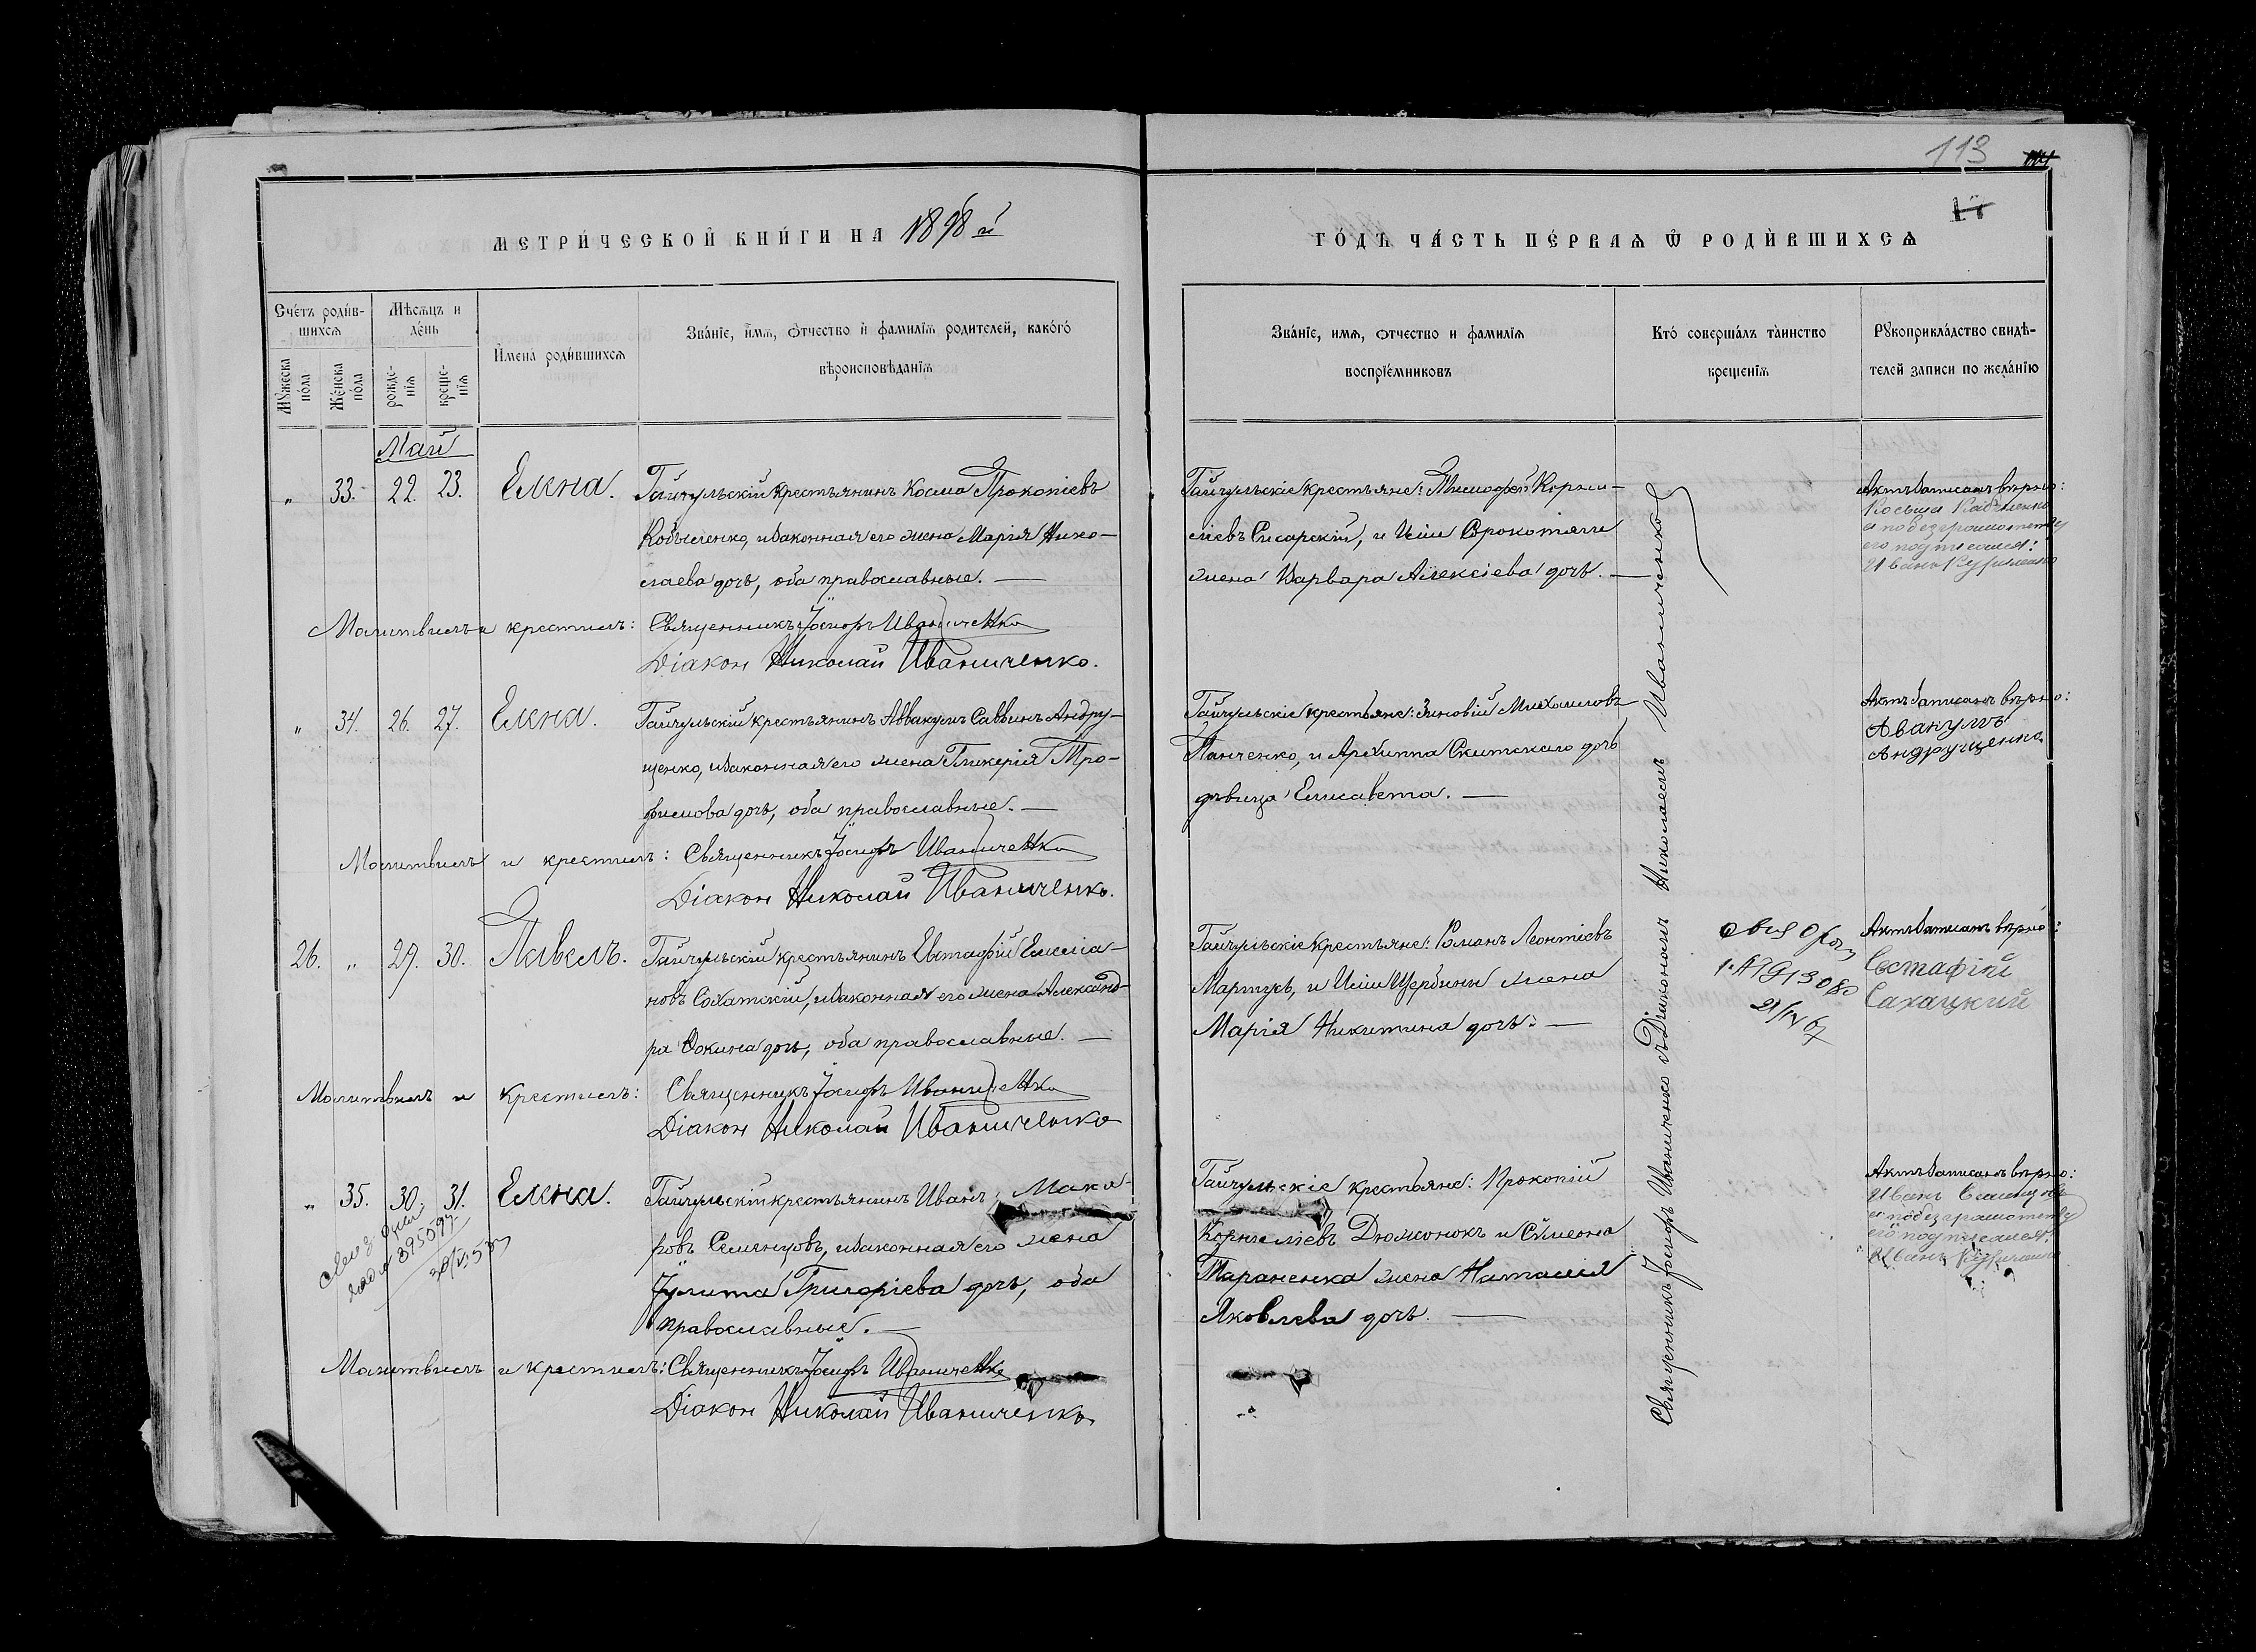 113
МЕТРИ́ЧЕСКОЙ КНИ́ГИ НА 1898 й
ГО́ДЪ ЧА́СТЬ ПЕ́РВАѦ Ѿ РОДИ́ВШИХСѦ
Сче́тъ роди́в-
шихсѧ
Мꙋ́жеска
по́ла
Же́нска
по́ла
Мѣ́сѧцъ и
де́нь
рожде-
нїѧ
креще-
нїѧ
И҆мена̀ роди́вшихсѧ
Зва́нїе, и҆́мѧ, ѻ҆́тчество и҆ фами́лїѧ роди́телей, како́гѡ
вѣроисповѣ́данїѧ
Зва́нїе, имѧ, ѻтчество и фамилїѧ
воспрїе́мниковъ
Кто́ соверша́лъ та́инство
креще́нїѧ
Рꙋкоприкла́дство свидѣ́-
телей записи по жела́нїю
Май
„ 33. 22. 23. Елена. Гайчульскій крестьянинъ Косма Прокопіевъ
Кобыленко, и законная его жена Марія Нико-
лаева дочь, оба православные. —
Молитвилъ и крестилъ: Священникъ Іосифъ Иваниченко
Діаконъ Николай Иваниченко.
Гайчульскіе крестьяне: Тимофей Корни-
ліевъ Сисарскій, и Иліи Сорокотяги
жена Варвара Алексіева дочь. —
Актъ записанъ вѣрно:
а по безграмотству
его подписался:
Иванъ
„ 34. 26. 27. Елена. Гайчульскій крестьянинъ Аввакумъ Саввинъ Андру-
щенко, и законная его жена Гликерія Тро-
фимова дочь, оба православные. —
Молитвилъ и крестилъ: Священникъ Іосифъ Иваниченко
Діаконъ Николай Иваниченко.
Гайчульскіе крестьяне: Зиновій Михаиловъ
Панченко, и Архиппа Скитского дочь
дѣвица Елисавета. —
Актъ записанъ вѣрно:
Авакумъ
Андрущенко
26. „ 29. 30. Павелъ. Гайчульскій крестьянинъ Евстафій Емеліа-
новъ Сохатскій, и законная его жена Александ-
ра Фокина дочь, оба православные. —
Молитвилъ и крестилъ: Священникъ Іосифъ Иваниченко
Діаконъ Николай Иваниченко
Гайчульскіе крестьяне: Романъ Леонтіевъ
Мартусь, и Иліи Щербины жена
Марія Никитина дочь. —
Актъ записанъ вѣрно:
Евстафій
Сахацкий
„ 35. 30. 31. Елена. Гайчульскій крестьянинъ Иванъ Мака-
ровъ Семенцовъ, и законная его жена
Іулита Григоріева дочь, оба
православные. —
Молитвилъ и крестилъ: Священникъ Іосифъ Иваниченко
Діаконъ Николай Иваниченко
Гайчульскіе крестьяне: Прокопій
Корниліевъ Дюжонокъ и Симеона
Тараненка жена Наталія
Яковлева дочь. —
Актъ записанъ вѣрно:
Иванъ Семенцовъ
а по безграмотству
его подписался:
Иванъ
Священникъ Іосифъ Иваниченко съ Діакономъ Николаемъ Иваниченко